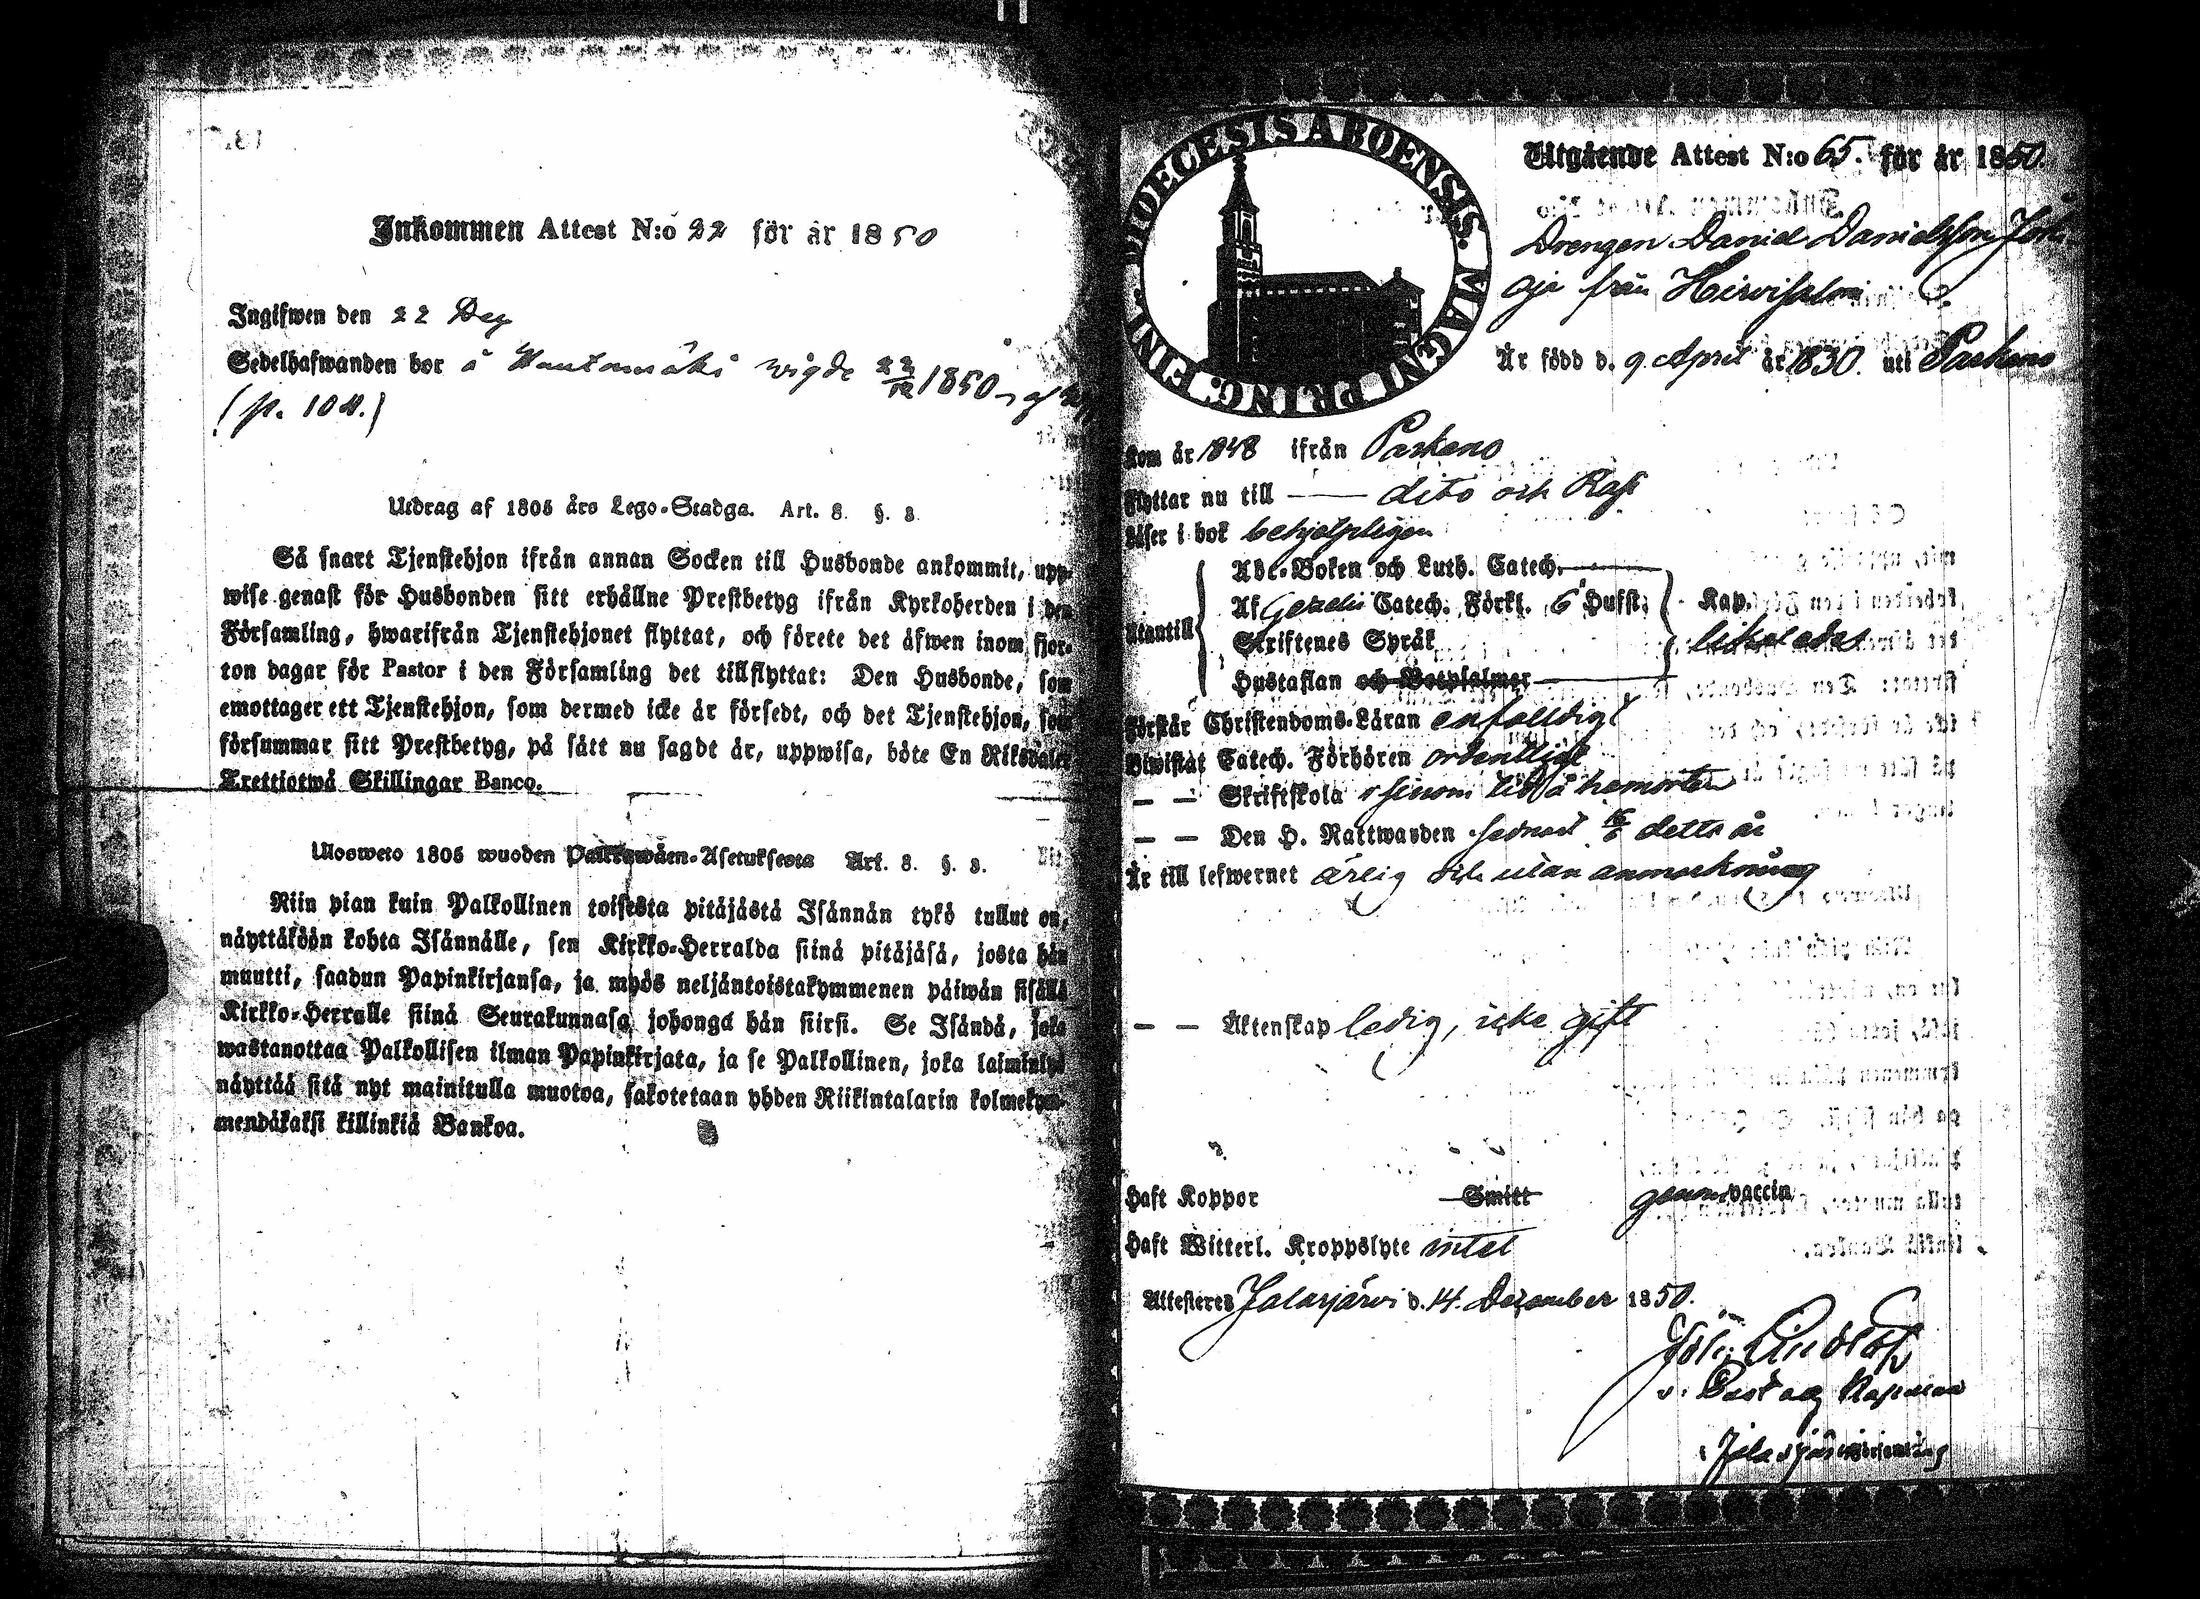 Inkommen Attest N:o 22 för år 1850
Ingifwen den 22 Dec
Sedelhafwanden bor å wigde 22/12 1850
(p. 104.)
Utdrag af 1805 års Lego-Stadga. Art. 8. §. 3.
Så snart Tjenstehjon ifrån annan Socken till Husbonde ankommit, upp-
wise genast för Husbonden sitt erhållne Prestbetyg ifrån Kyrkoherden i den
Församling, hwarifrån Tjenstehjonet flyttat, och förete det åfwen inom fjor-
ton dagar för Pastor i den Församling det tillflyttat: Den Husbonde, som
emottager ett Tjenstehjon, som dermed icke är försedt, och det Tjenstehjon, som
försummar sitt Prestbetyg, på sätt nu sagdt är, uppwisa, böte En Riksdaler
Trettiotwå Skillingar Banco.
Ulosweto 1805 wuoden Palkkawäen-Asetuksesta Art. 8. §. 3.
Niin pian kuin Palkollinen toisesta pitäjästä Isännän tykö tullut on,
näyttäköön kohta Isännälle, sen Kirkko-Herralda siinä pitäjäsä, josta hän
muutti, saadun Papinkirjansa, ja myös neljäntoistakymmenen päiwän sisällä
Kirkko-Herralle siinä Seurakunnasa, johonga hän siirsi. Se Isändä, joka
wastanottaa Palkollisen ilman Papinkirjata, ja se Palkollinen, joka laiminlyö
näyttää sitä nyt mainitulla muotoa, sakotetaan yhden Riikintalarin kolmekym-
mendäkaksi killinkiä Bankoa.
DIOECESIS ABOENSIS. MAGNI PRINC. FINL.
Utgående Attest N:o 65. för år 1850.
Drengen Daniel Danielsson
oja från Hirvijalov
År född d. 9 April år 1830. uti Parkano
Kom år 1848 ifrån Parkano
Flyttar nu till — dito och
Läser i bok behjelpligen
Abc-Boken och Luth. Catech.
Af Gezelii Catech. Förkl. 6 Hufst. Kap.
Utantill Skriftenes Språk likaledes
Hustaflan och Botpsalmer
Förstår Christendoms-Läran enfalldigt
Biwistat Catech. Förhören ordentligt
— — Skriftskola i sinom tid å hemorten
— — Den H. Nattwarden sednast detta år
Är till lefwernet ärlig och utan anmerkning
— — Äktenskap ledig, icke gift
Haft Koppor Smitt genom vaccin
Haft Witterl. Kroppslyte intet
Attesteres Jalasjärvi d. 14. December 1850.
Joh. Lindlöf
v. Past och Kapellan
i Jalasjärvi